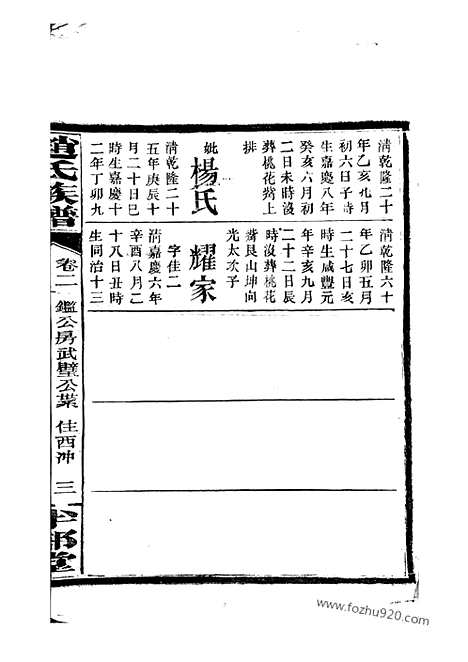 清乾隆二十
年乙亥九月
初六日子時
生嘉慶八年
癸亥六月初
二日未時沒
葬桃花嶺上
排
妣楊氏
清乾隆二十
五年庚辰十
月二十日巳
時生嘉慶十
二年丁卯九
清乾隆六十
年乙卯五月
二十七日亥
時生咸豐元
年辛亥九月
二十二日辰
時沒葬桃花
嶺艮山坤向
光太次子
耀家
字佳二
清嘉慶六年
辛酉八月二
十八日丑時
生同治十三
趙氏族譜
卷二
鑑公房武璧公
住西沖
三
半部堂
www.fozhu920.com